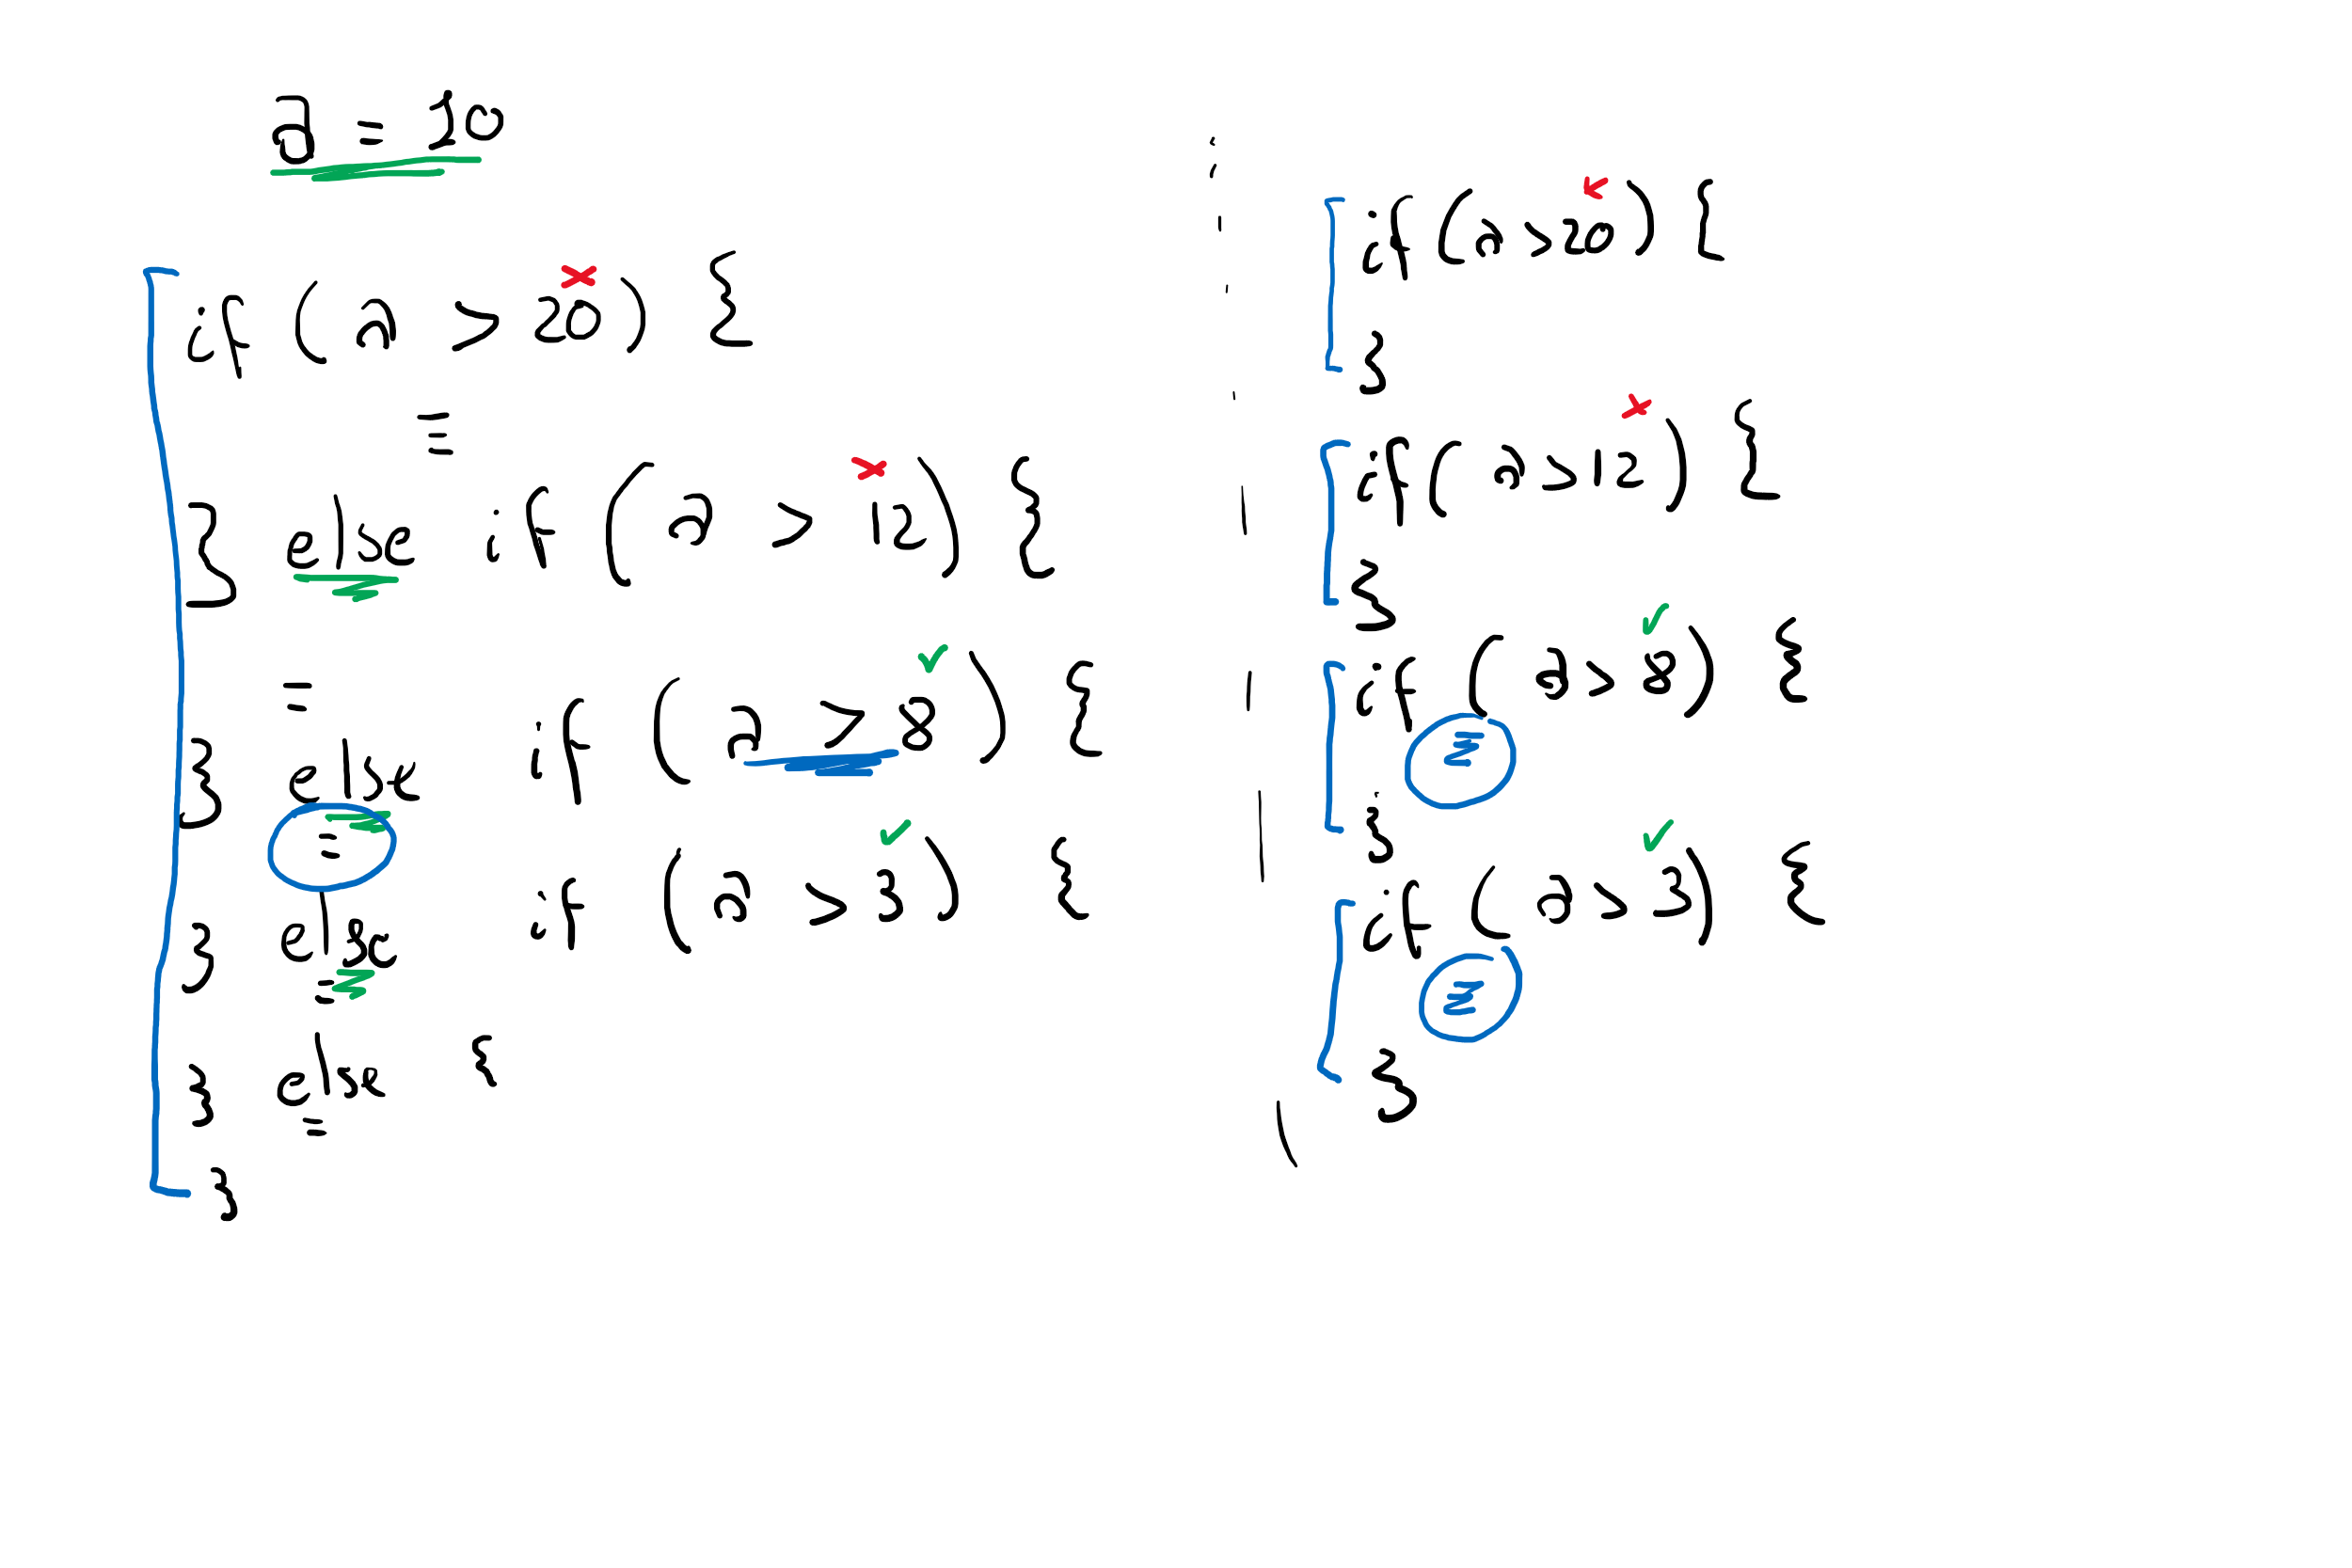 a = 10
if (a > 20) {
} else if (a > 12) {
} else if (a > 8) {
} else if (a > 3) {
} else {
}
if (a > 20) {
}
if (a > 12) {
}
if (a > 8) {
}
if (a > 3) {
}